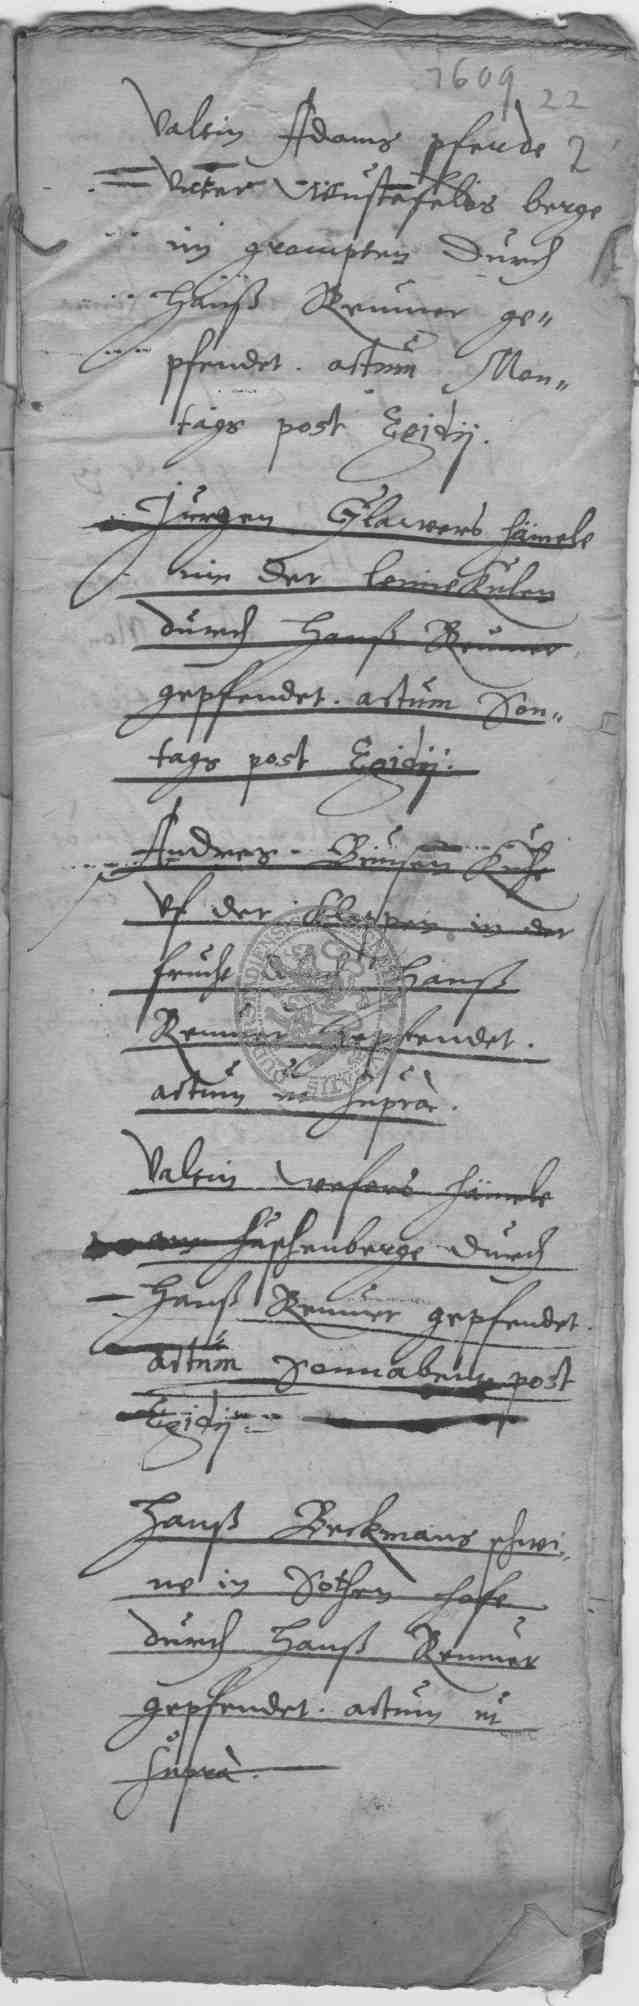 1609
22
Valtin Adams pferde 2
Unter Wustefeldes berge
im grompten durch
Hanß Reumer ge„
pfendet. actum Mon„
tags post Egidij.
Jurgen Glawers hämele
nin der leimekulen
durch Hanß Reumer
gepfendet. actum Son„
tags post Egidij.
Andres Kuhe
Uf der in der
frucht durch Hanß
Reumer gepfendet.
actum ut supra.
Valtin wefers hämele
am durch
Hanß Reumer gepfendet.
actum Sonnabent post
Egidij.
Hanß Beckmans schwi„
ne in Sothen hofe
durch Hanß Reumer
gepfendet. actum ut
supra.